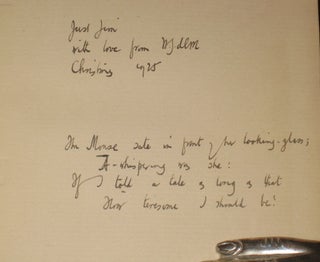 Just Jim
with love from WJDLM
Christmas 1925
The Mouse sate in front of her looking-glass;
A-whispering was she:
If I told a tale as long as that
How tiresome I should be!